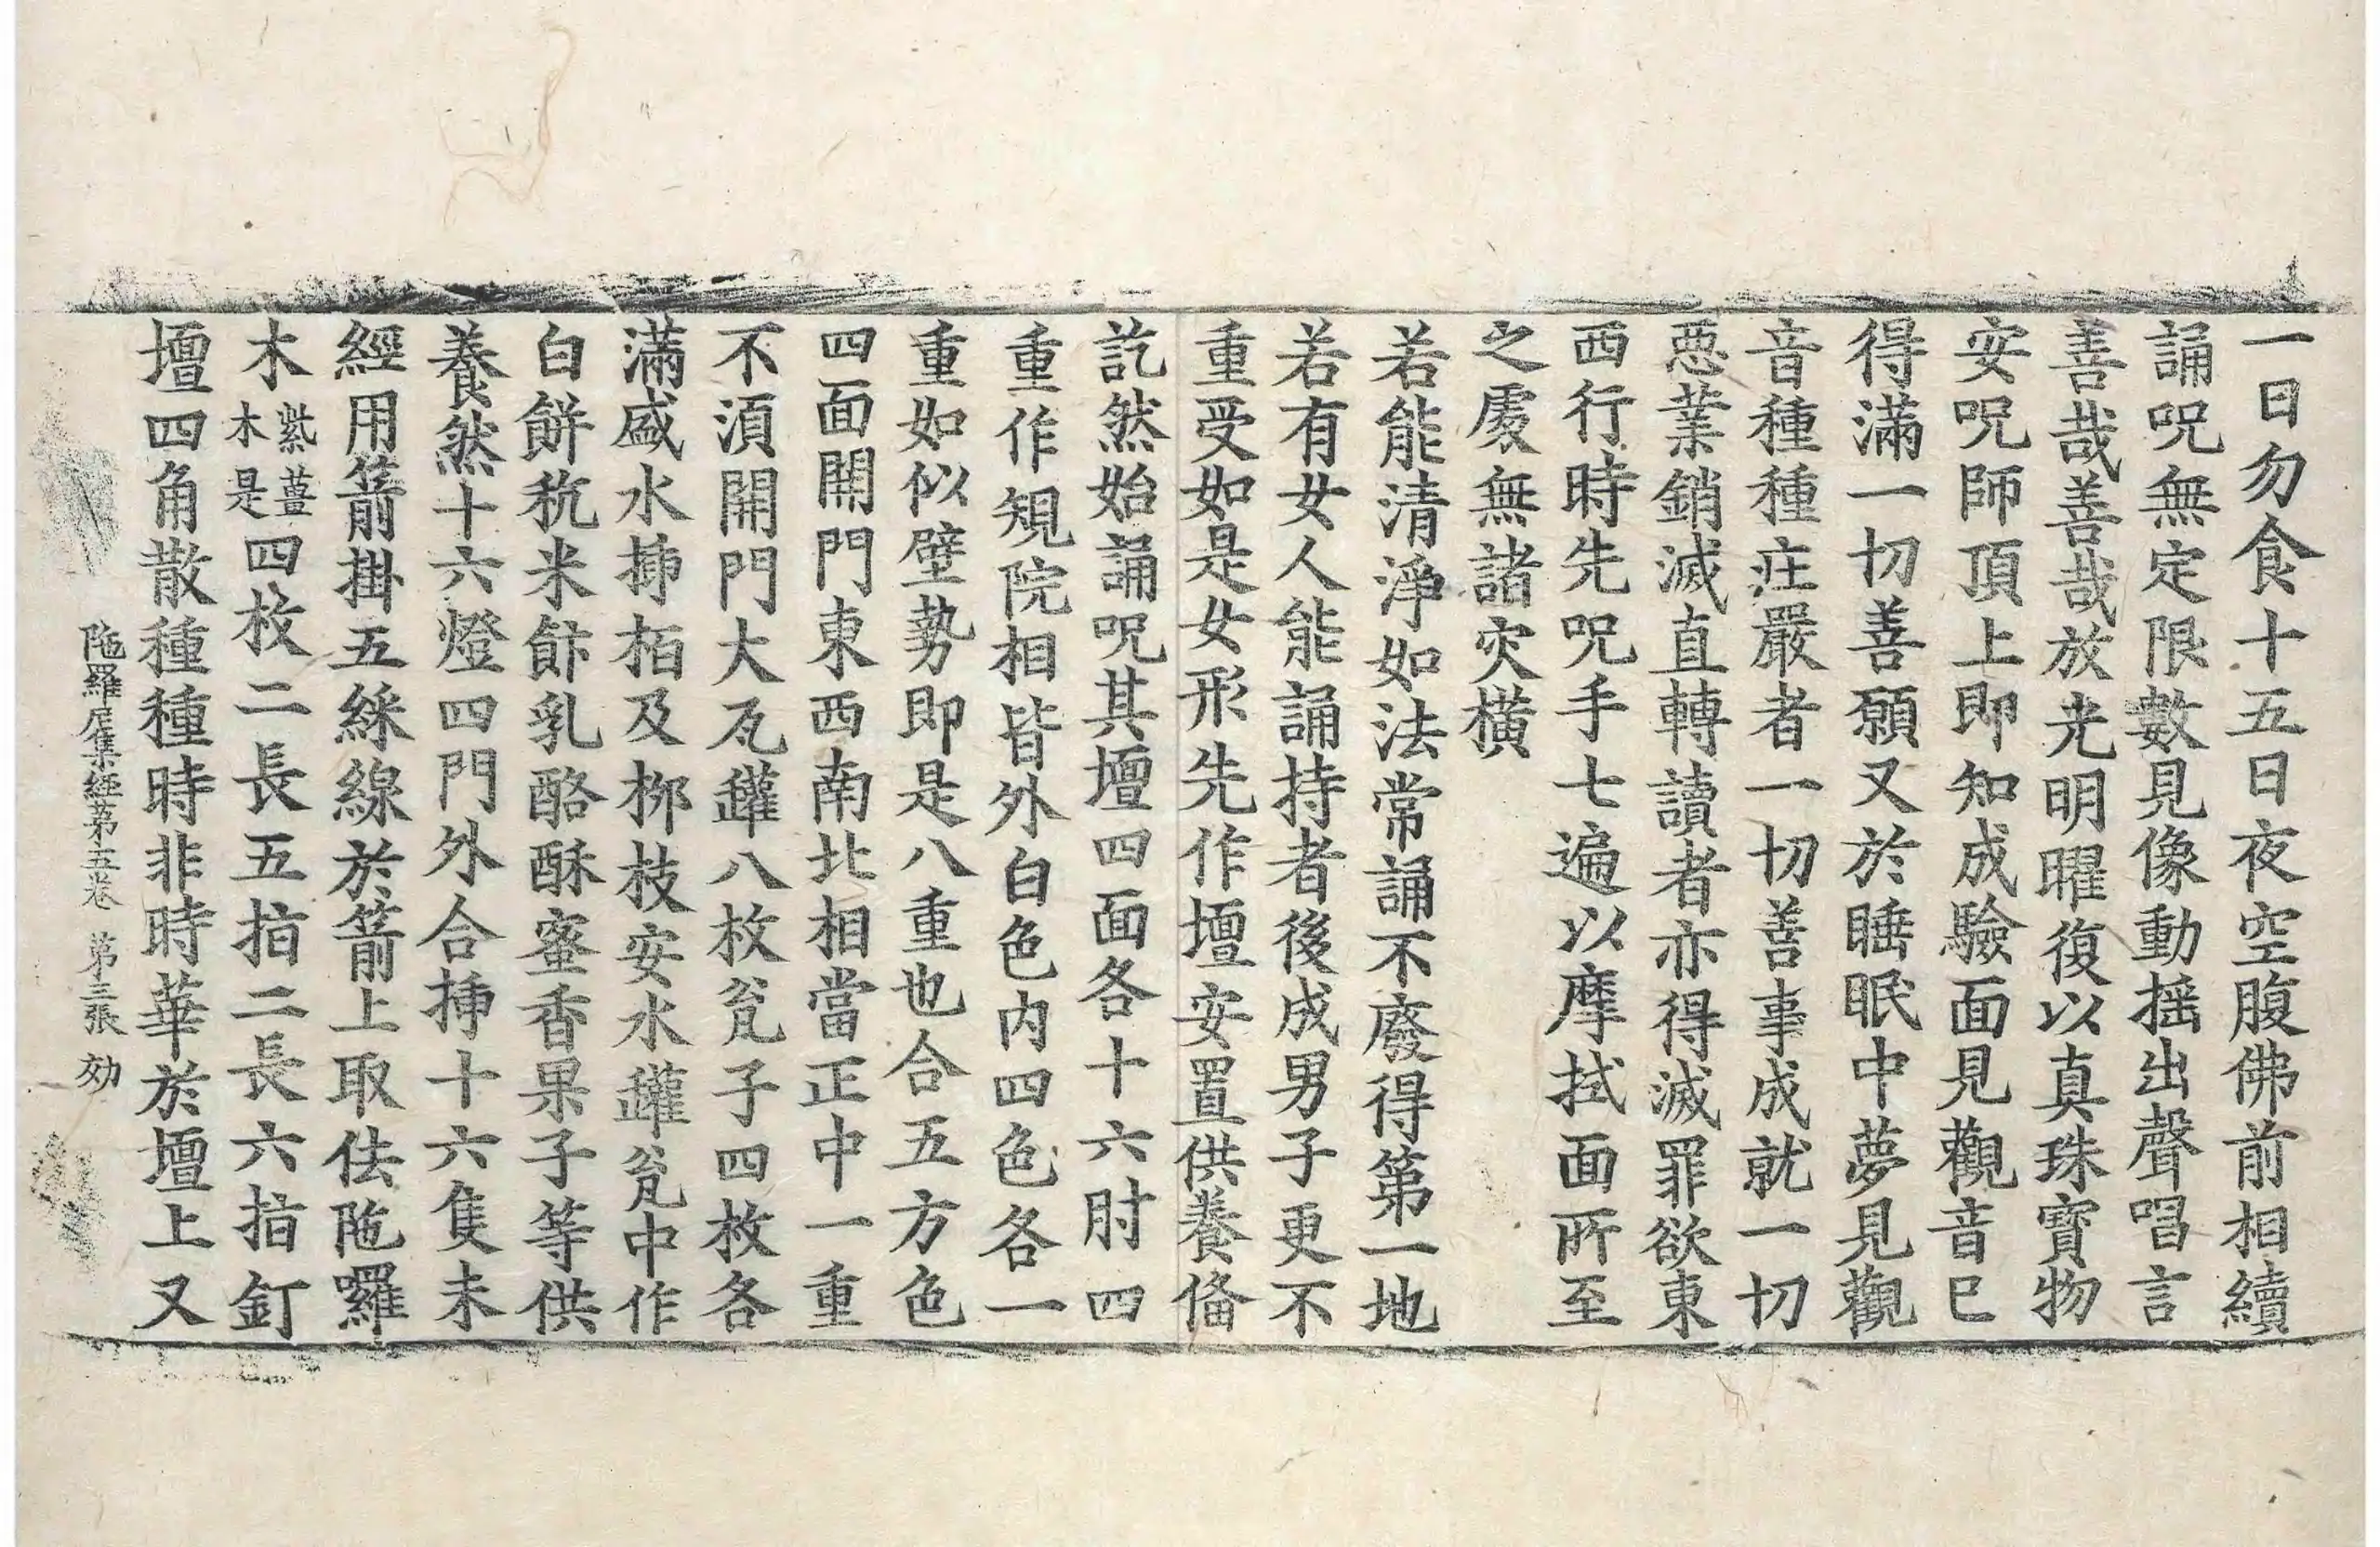 一日勿食十五日夜空腹佛前相續
誦呪無定限數見像動揺出聲唱言
善哉善哉放光明曜復以真珠寶物
安呪師頂上即知成驗面見觀音已
得滿一切善願又於睡眠中夢見觀
音種種莊嚴者一切善事成就一切
惡業銷滅直轉讀者亦得滅罪欲東
西行時先呪手七遍以摩拭面所至
之處無諸灾橫
若能清淨如法常誦不廢得第一地
若有女人能誦持者後成男子更不
重受如是女形先作壇安置供養俻
訖然始誦呪其壇四面各十六肘四
重作規院相皆外白色内四色各一
重如似壁勢即是八重也合五方色
四面開門東西南北相當正中一重
不須開門大瓦罐八枚瓮子四枚各
滿盛水揷栢及栁枝安水罐瓮中作
白餅秔米飰乳酪酥蜜香果子等供
養然十六燈四門外合揷十六隻未
經用箭掛五綵線於箭上取佉陁囉
木紫薑木是四枚二長五指二長六指釘
壇四角散種種時非時華於壇上又
陁羅尼集經第五卷　第三張　効